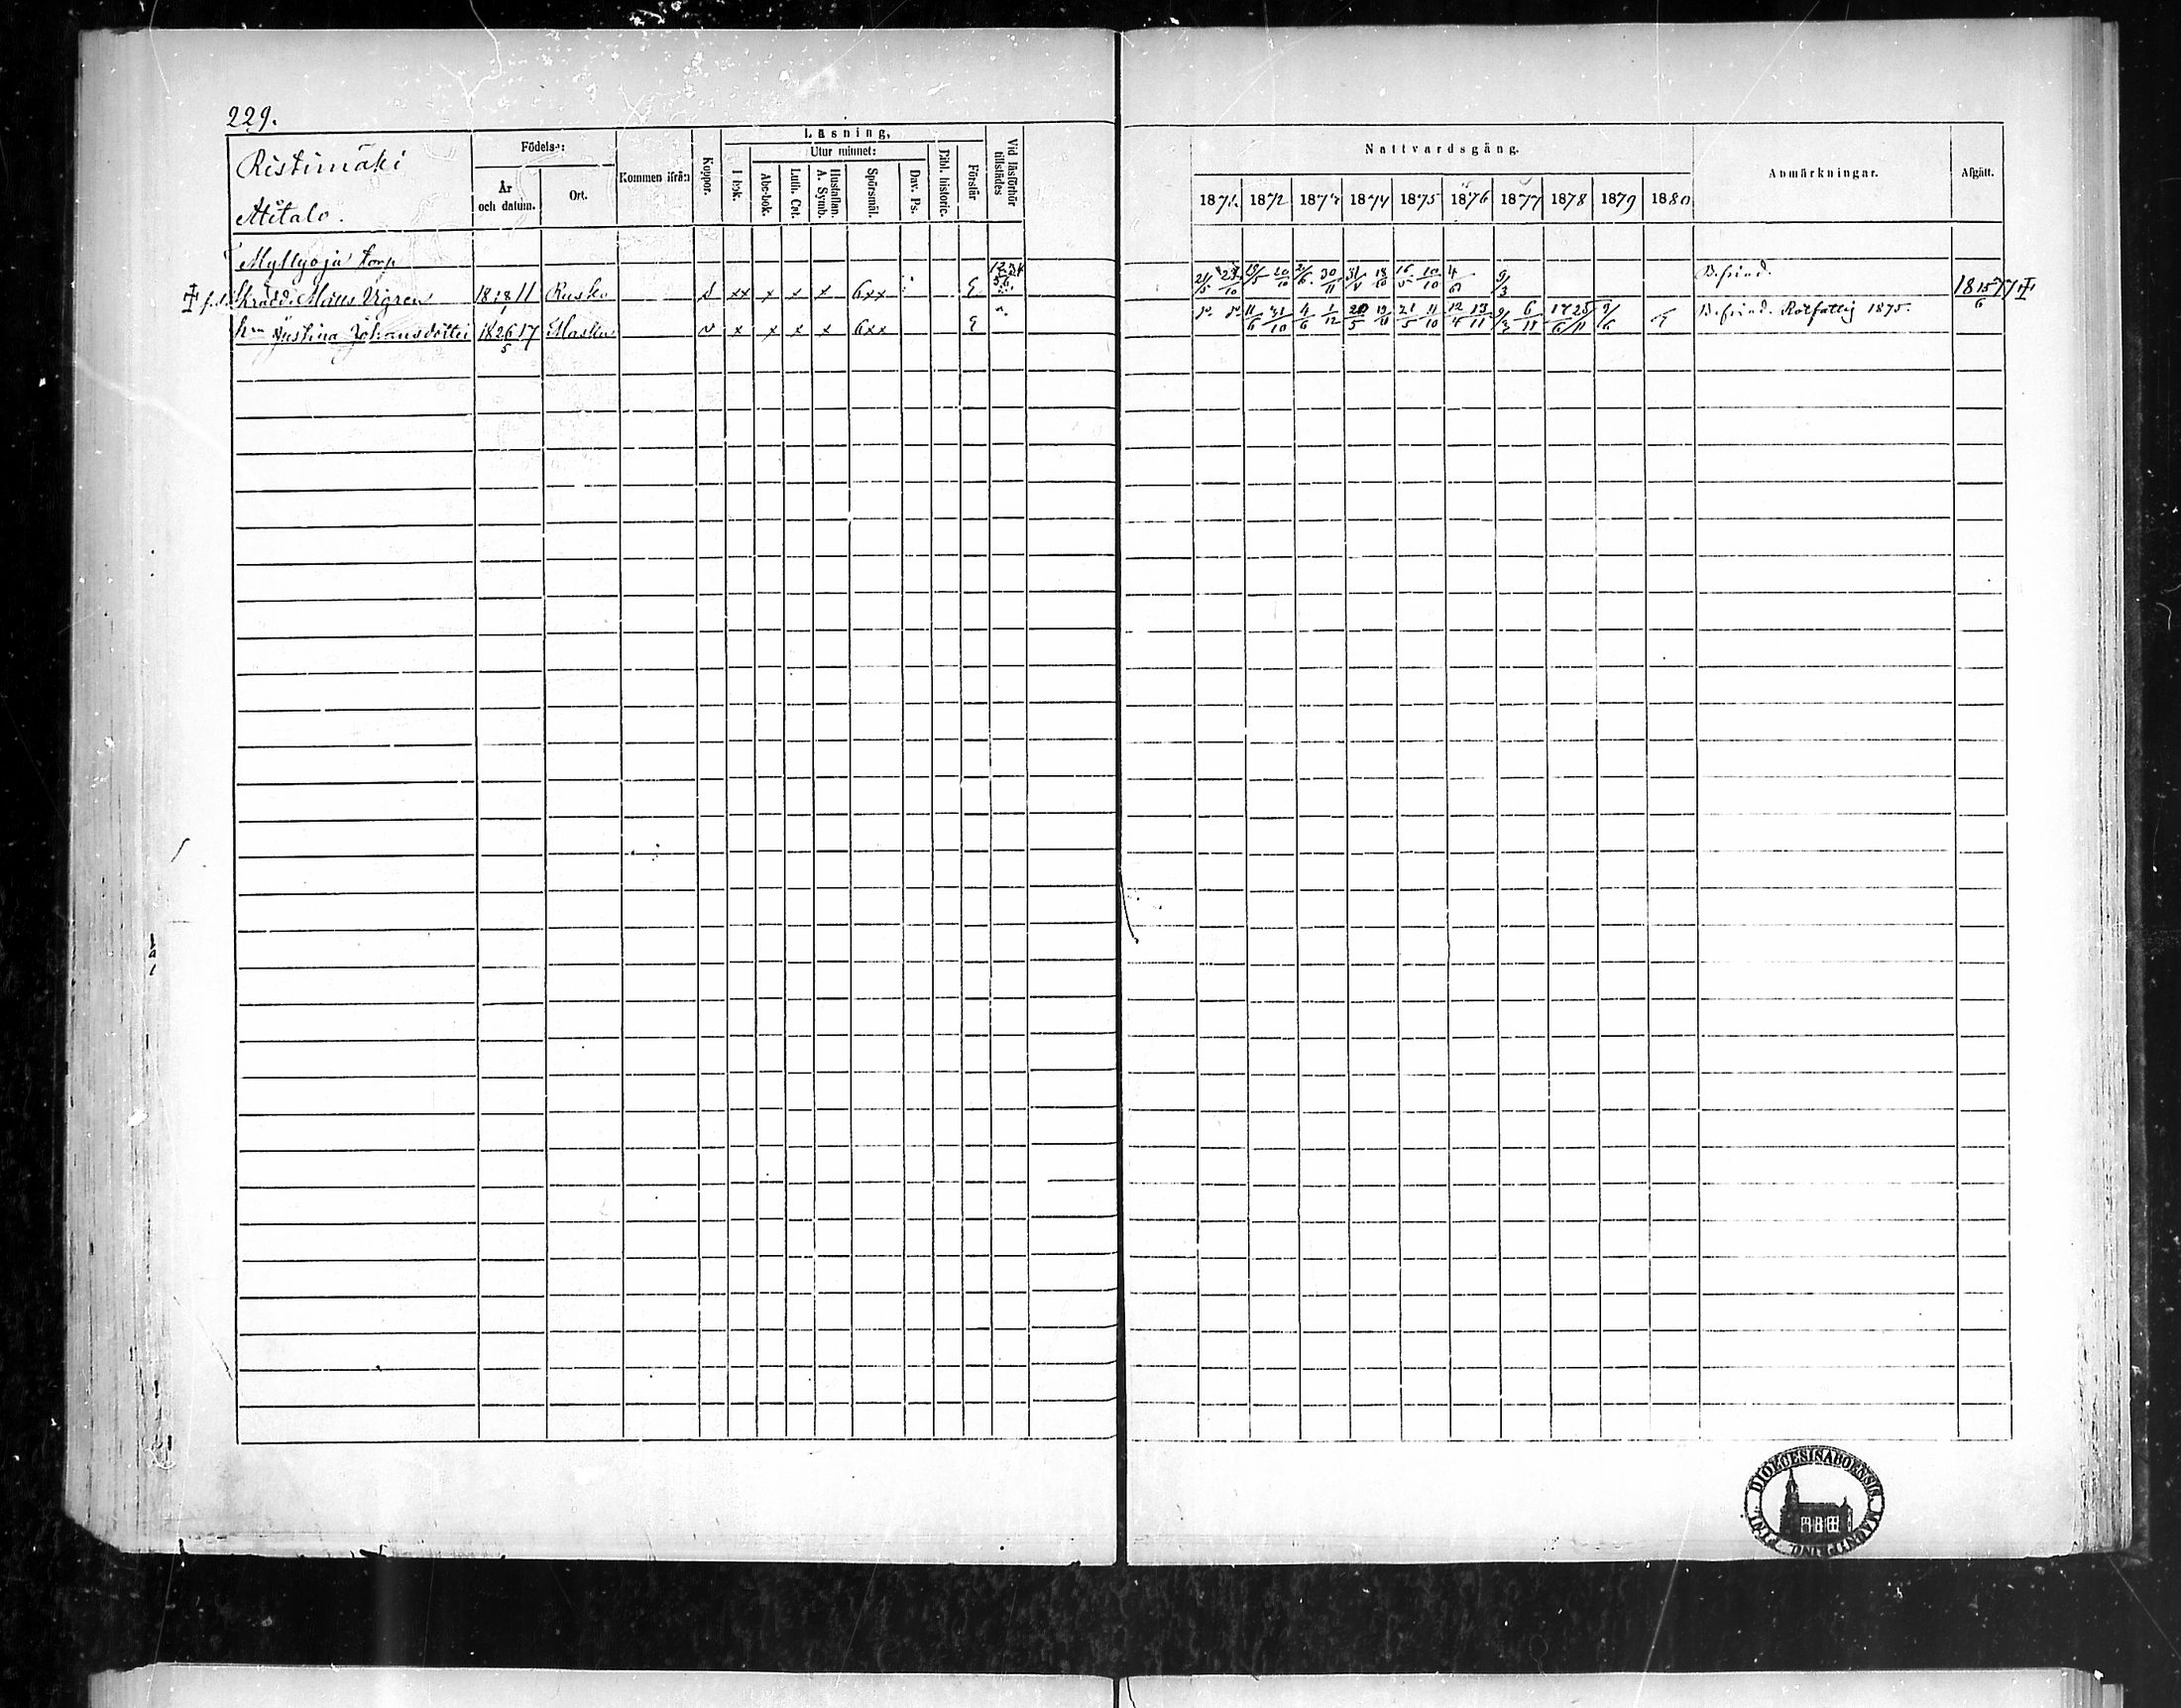 229.
Ristimäki
Ali talo.
Födelse:
År och datum.
Ort.
Kommen ifrån
Koppor.
Läsning,
I bok.
Utur minnet:
Abc-bok.
Luth. Cat.
Hustaflan. A. Symb.
Spörsmål.
Dav. Ps.
Bibl. historie.
Förstår
Vid läsförhör tillstädes
Nattvardsgång.
1871. 1872 1873 1874 1875 1876 1877 1878 1879 1880
Anmärkningar.
Afgått.
Myllyoja torp
Skrädd. Matts Vigren 18 18 11/1 Rusko xx x x x 6xx
21/5 29/10 19/5 20/10 2/6 30/11 31/5 18/10 16/5 10/10 4/6 9/3 B. frejd. 18 15/6 77
hu Justina Johansdotter 1826 17/5 Masku v x x x x 6xx
11/6 4/6 1/12 20/5 21/5 11/10 12/4 9/3 6/11 17/6 25/11 9/6 B. frejd. Rotfattig 1875.
DIOECESIS ABOENSIS MAGNI PRINC. FINL.